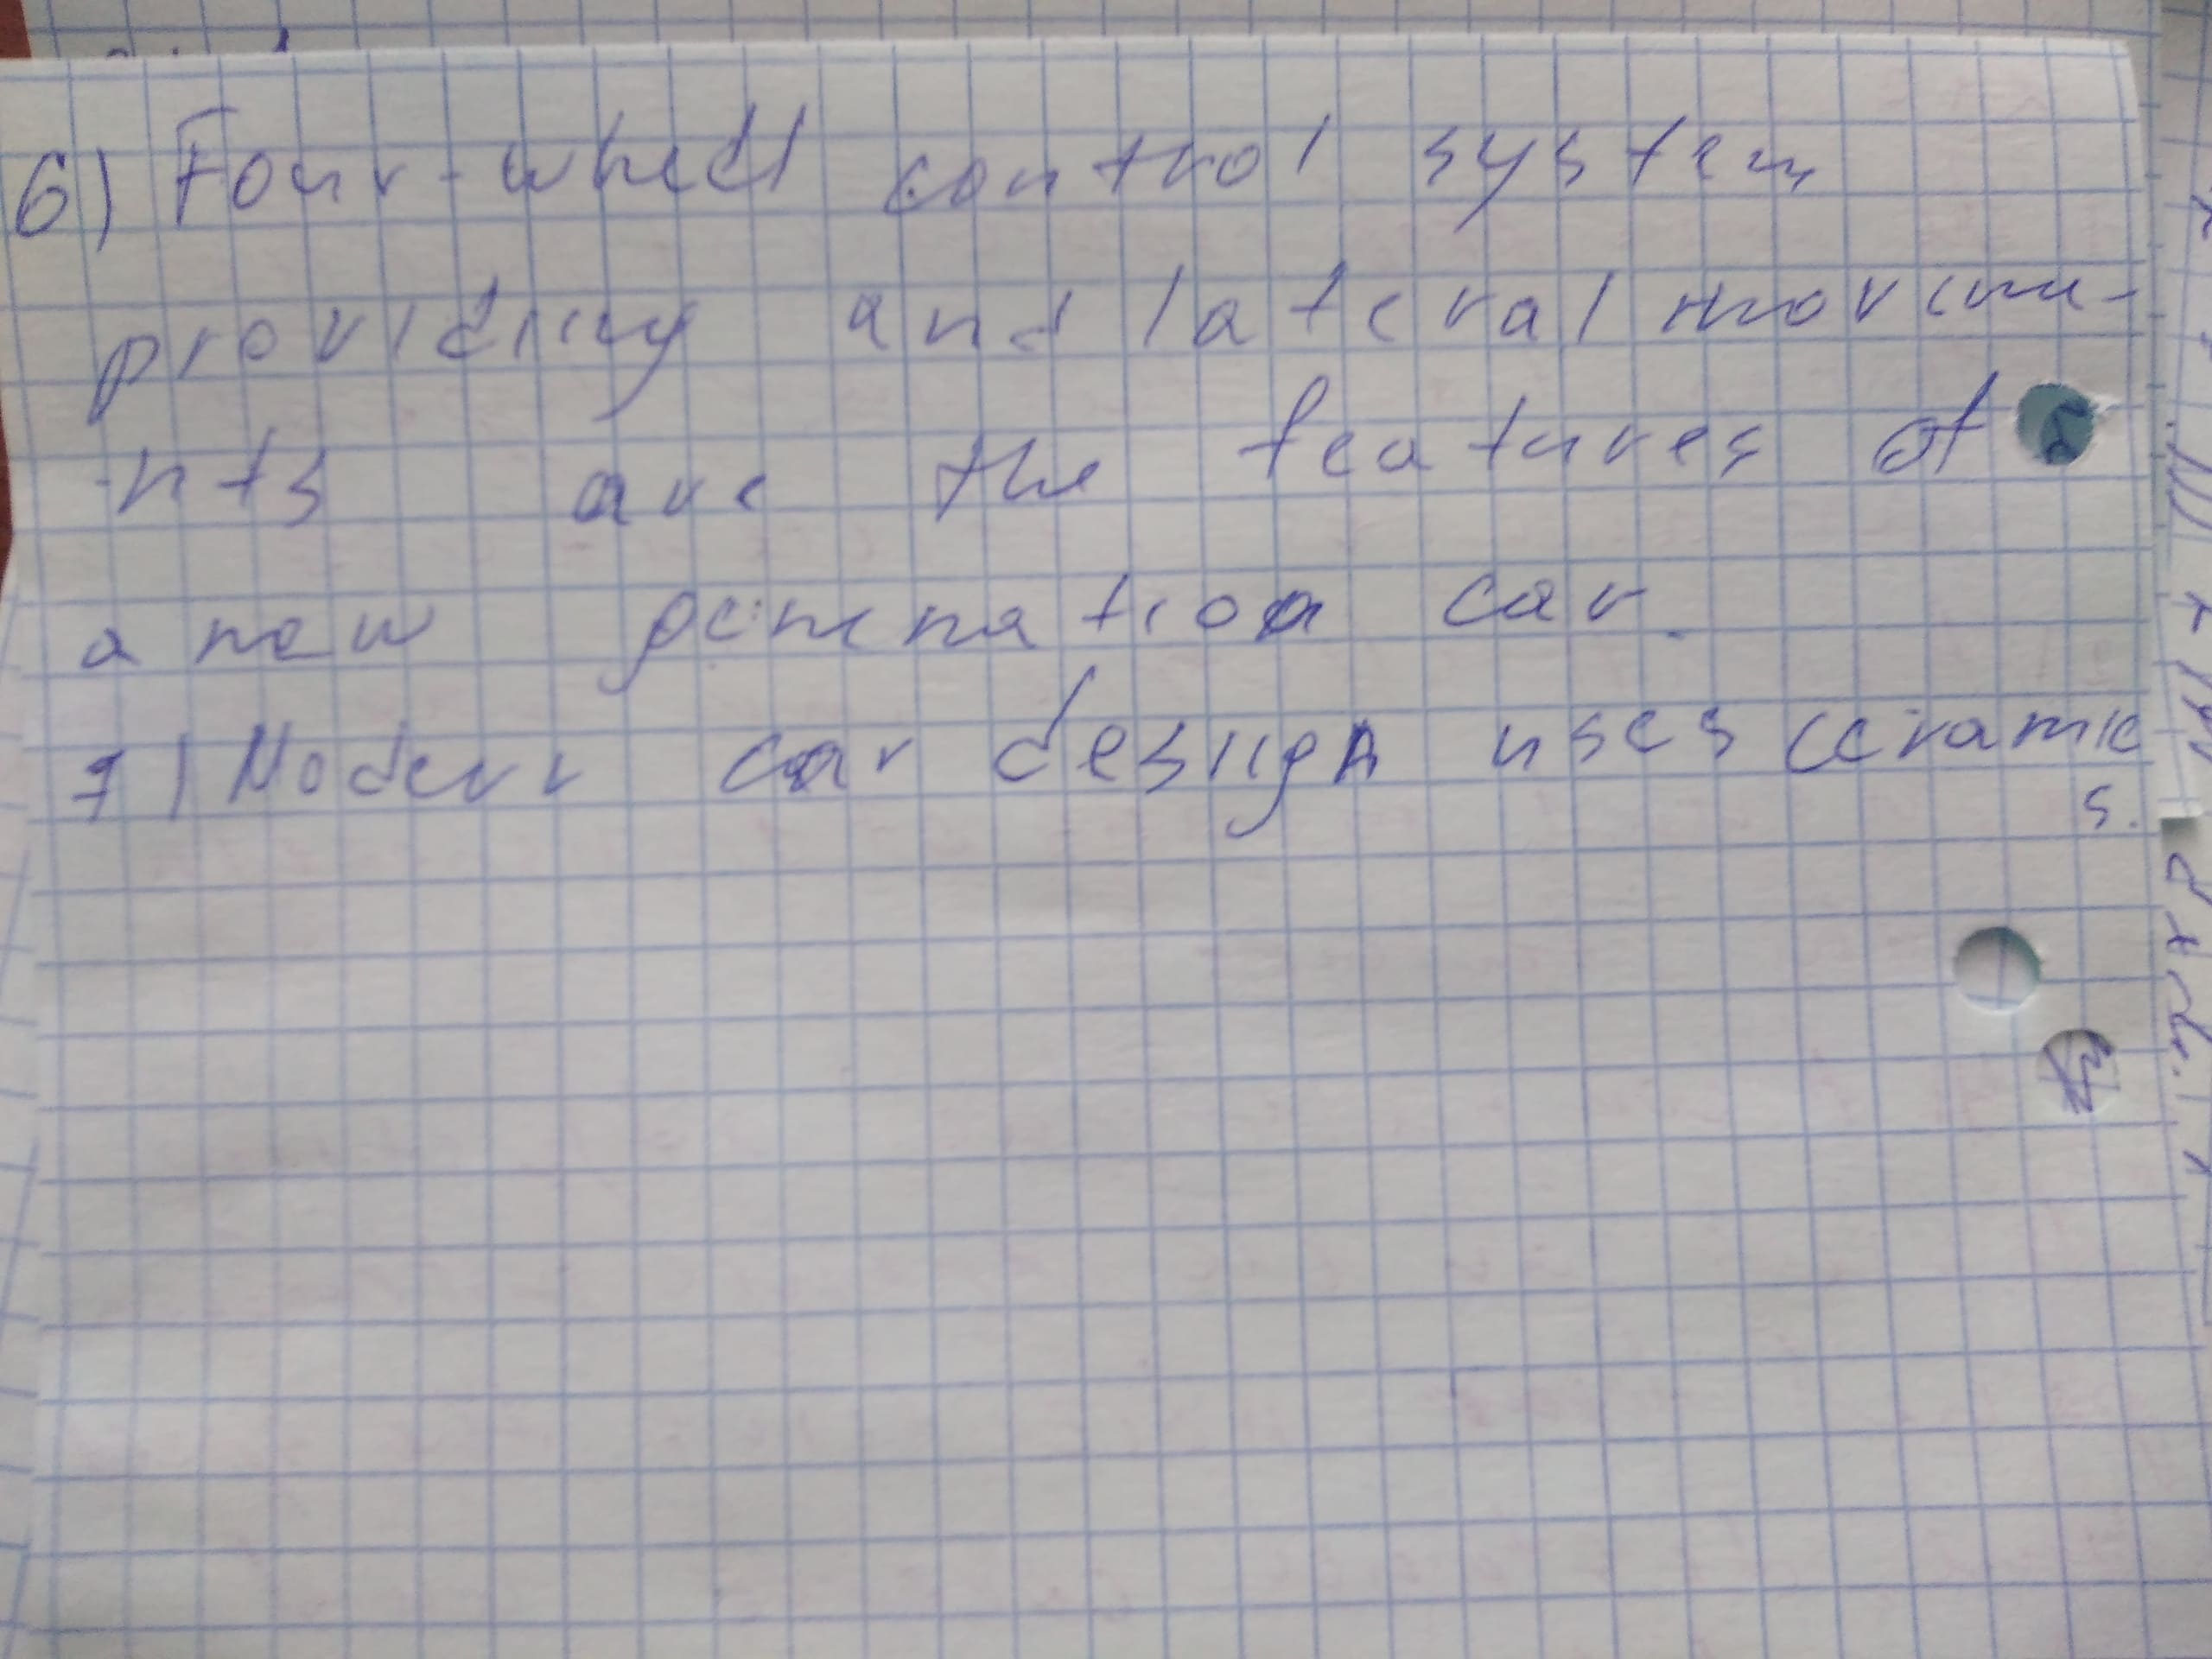 6) Four-wheel control system
providing and lateral moveme-
-nts are the features of
a new generation car.
7) Modern car design uses ceramic
s.